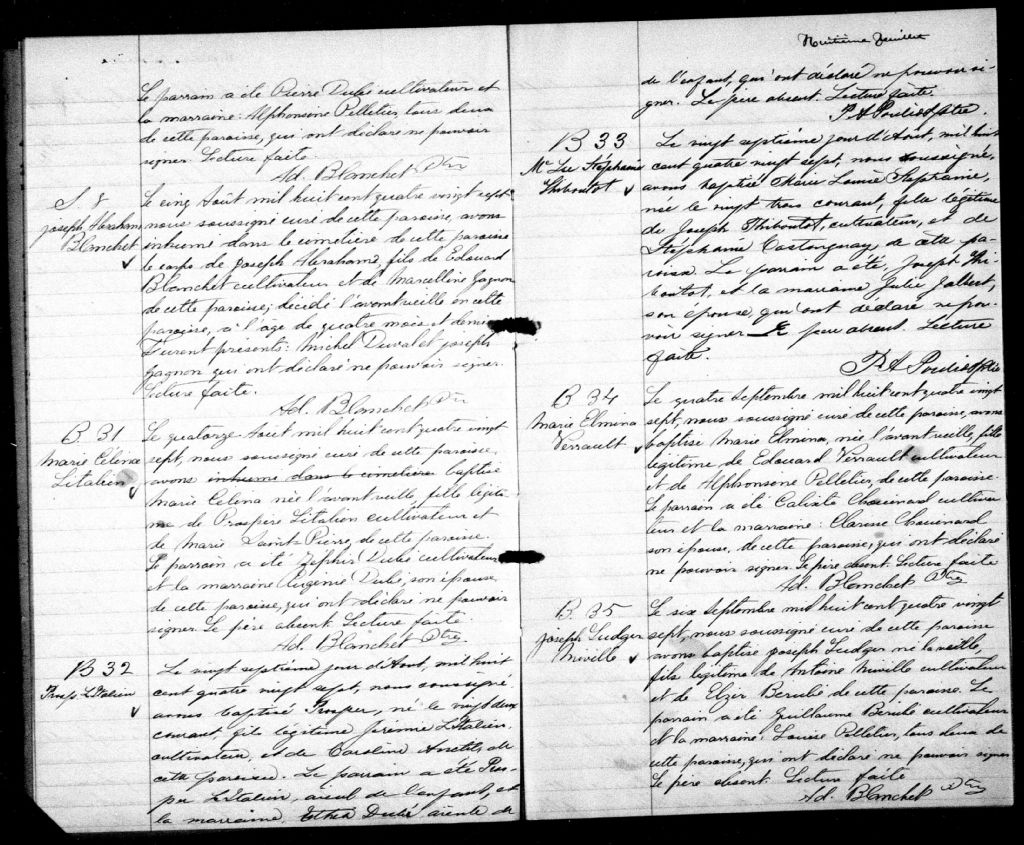 Le parrain a été Pierre Dubé cultivateur et
la marraine: Alphonsine Pelletier, tous deux
de cette paroisse, qui ont déclaré ne pouvoir
signer. Lecture faite.
Ad. Blanchet Ptre
S. 8
joseph Abraham
Blanchet
Le cinq Août mil huit cent quatre vingt sept
nous soussigné curé de cette paroisse, avons
inhumé dans le cimetière de cette paroisse
le corps de Joseph Abraham, fils de Edouard
Blanchet cultivateur et de Marcelline Gagnon
de cette paroisse; décédé l'avant veille en cette
paroisse, à l'âge de quatre mois et demi.
Furent présents: Michel Duval et joseph
Gagnon qui ont déclaré ne pouvoir signer.
Lecture faite.
Ad. Blanchet Ptre
B 31
Marie Celena
Litalien
Le quatorze Août mil huit cent quatre vingt
sept, nous soussigné curé de cette paroisse
avons inhumé dans le cimetière baptisé
Marie Celena née l'avant veille, fille légiti-
me de Prospère Litalien cultivateur et
de Marie Saint-Pierre, de cette paroisse.
Le parrain a été Zéphir Dubé cultivateur
et la marraine Eugénie Dubé, son épouse,
de cette paroisse, qui ont déclaré ne pouvoir
signer. Le père absent. Lecture faite.
Ad. Blanchet Ptre
B 32
Prosp. L'Italien
Le vingt septième jour d'Août, mil huit
cent quatre vingt sept, nous soussigné
avons baptisé Prosper, né le vingt deux
courant, fils légitime Jérémie L'Italien,
cultivateur, et de Caroline Anctil, de
cette paroisse. Le parrain a été Pros-
per L'Italien, aïeul de l'enfant, et
la marraine Dubé aïeule de
Huitième feuillet
de l'enfant, qui ont déclaré ne pouvoir si-
gner. Le père absent. Lecture faite.
P. A. Pouliot Ptre.
B 33
Me Lse Stéphanie
Thiboutot
Le vingt septième jour d'Août, mil huit
cent quatre vingt sept, nous soussigné,
avons baptisé Marie Louise Stéphanie,
née le vingt trois courant, fille légitime
de Joseph Thiboutot, cultivateur, et de
Stéphanie Castonguay, de cette pa-
roisse. Le parrain a été, Joseph Thi-
boutot, et la marraine Julie Jalbert,
son épouse, qui ont déclaré ne pou-
voir signer. Le père absent. Lecture
faite.
P. A. Pouliot Ptre
B 34
Marie Elmina
Verrault
Le quatre Septembre mil huit cent quatre vingt
sept, nous soussigné curé de cette paroisse, avons
baptisé Marie Elmina, née l'avant veille, fille
légitime de Edouard Verrault cultivateur
et de Alphonsine Pelletier, de cette paroisse.
Le parrain a été Calixte Chouinard cultiva-
teur et la marraine: Clarisse Chouinard
son épouse, de cette paroisse, qui ont déclaré
ne pouvoir signer. Le père absent. Lecture faite
Ad. Blanchet Ptre
B 35
joseph Ludger
Miville
Le six Septembre mil huit cent quatre vingt
sept, nous soussigné curé de cette paroisse
avons baptisé joseph Ludger né la veille,
fils légitime de Antoine Miville cultivateur
et de Elzir Berubé de cette paroisse. Le
parrain a été Guillaume Bérubé cultivateur
et la marraine: Louise Pelletier, tous deux de
cette paroisse, qui ont déclaré ne pouvoir signer
Le père absent. Lecture faite
Ad. Blanchet Ptre